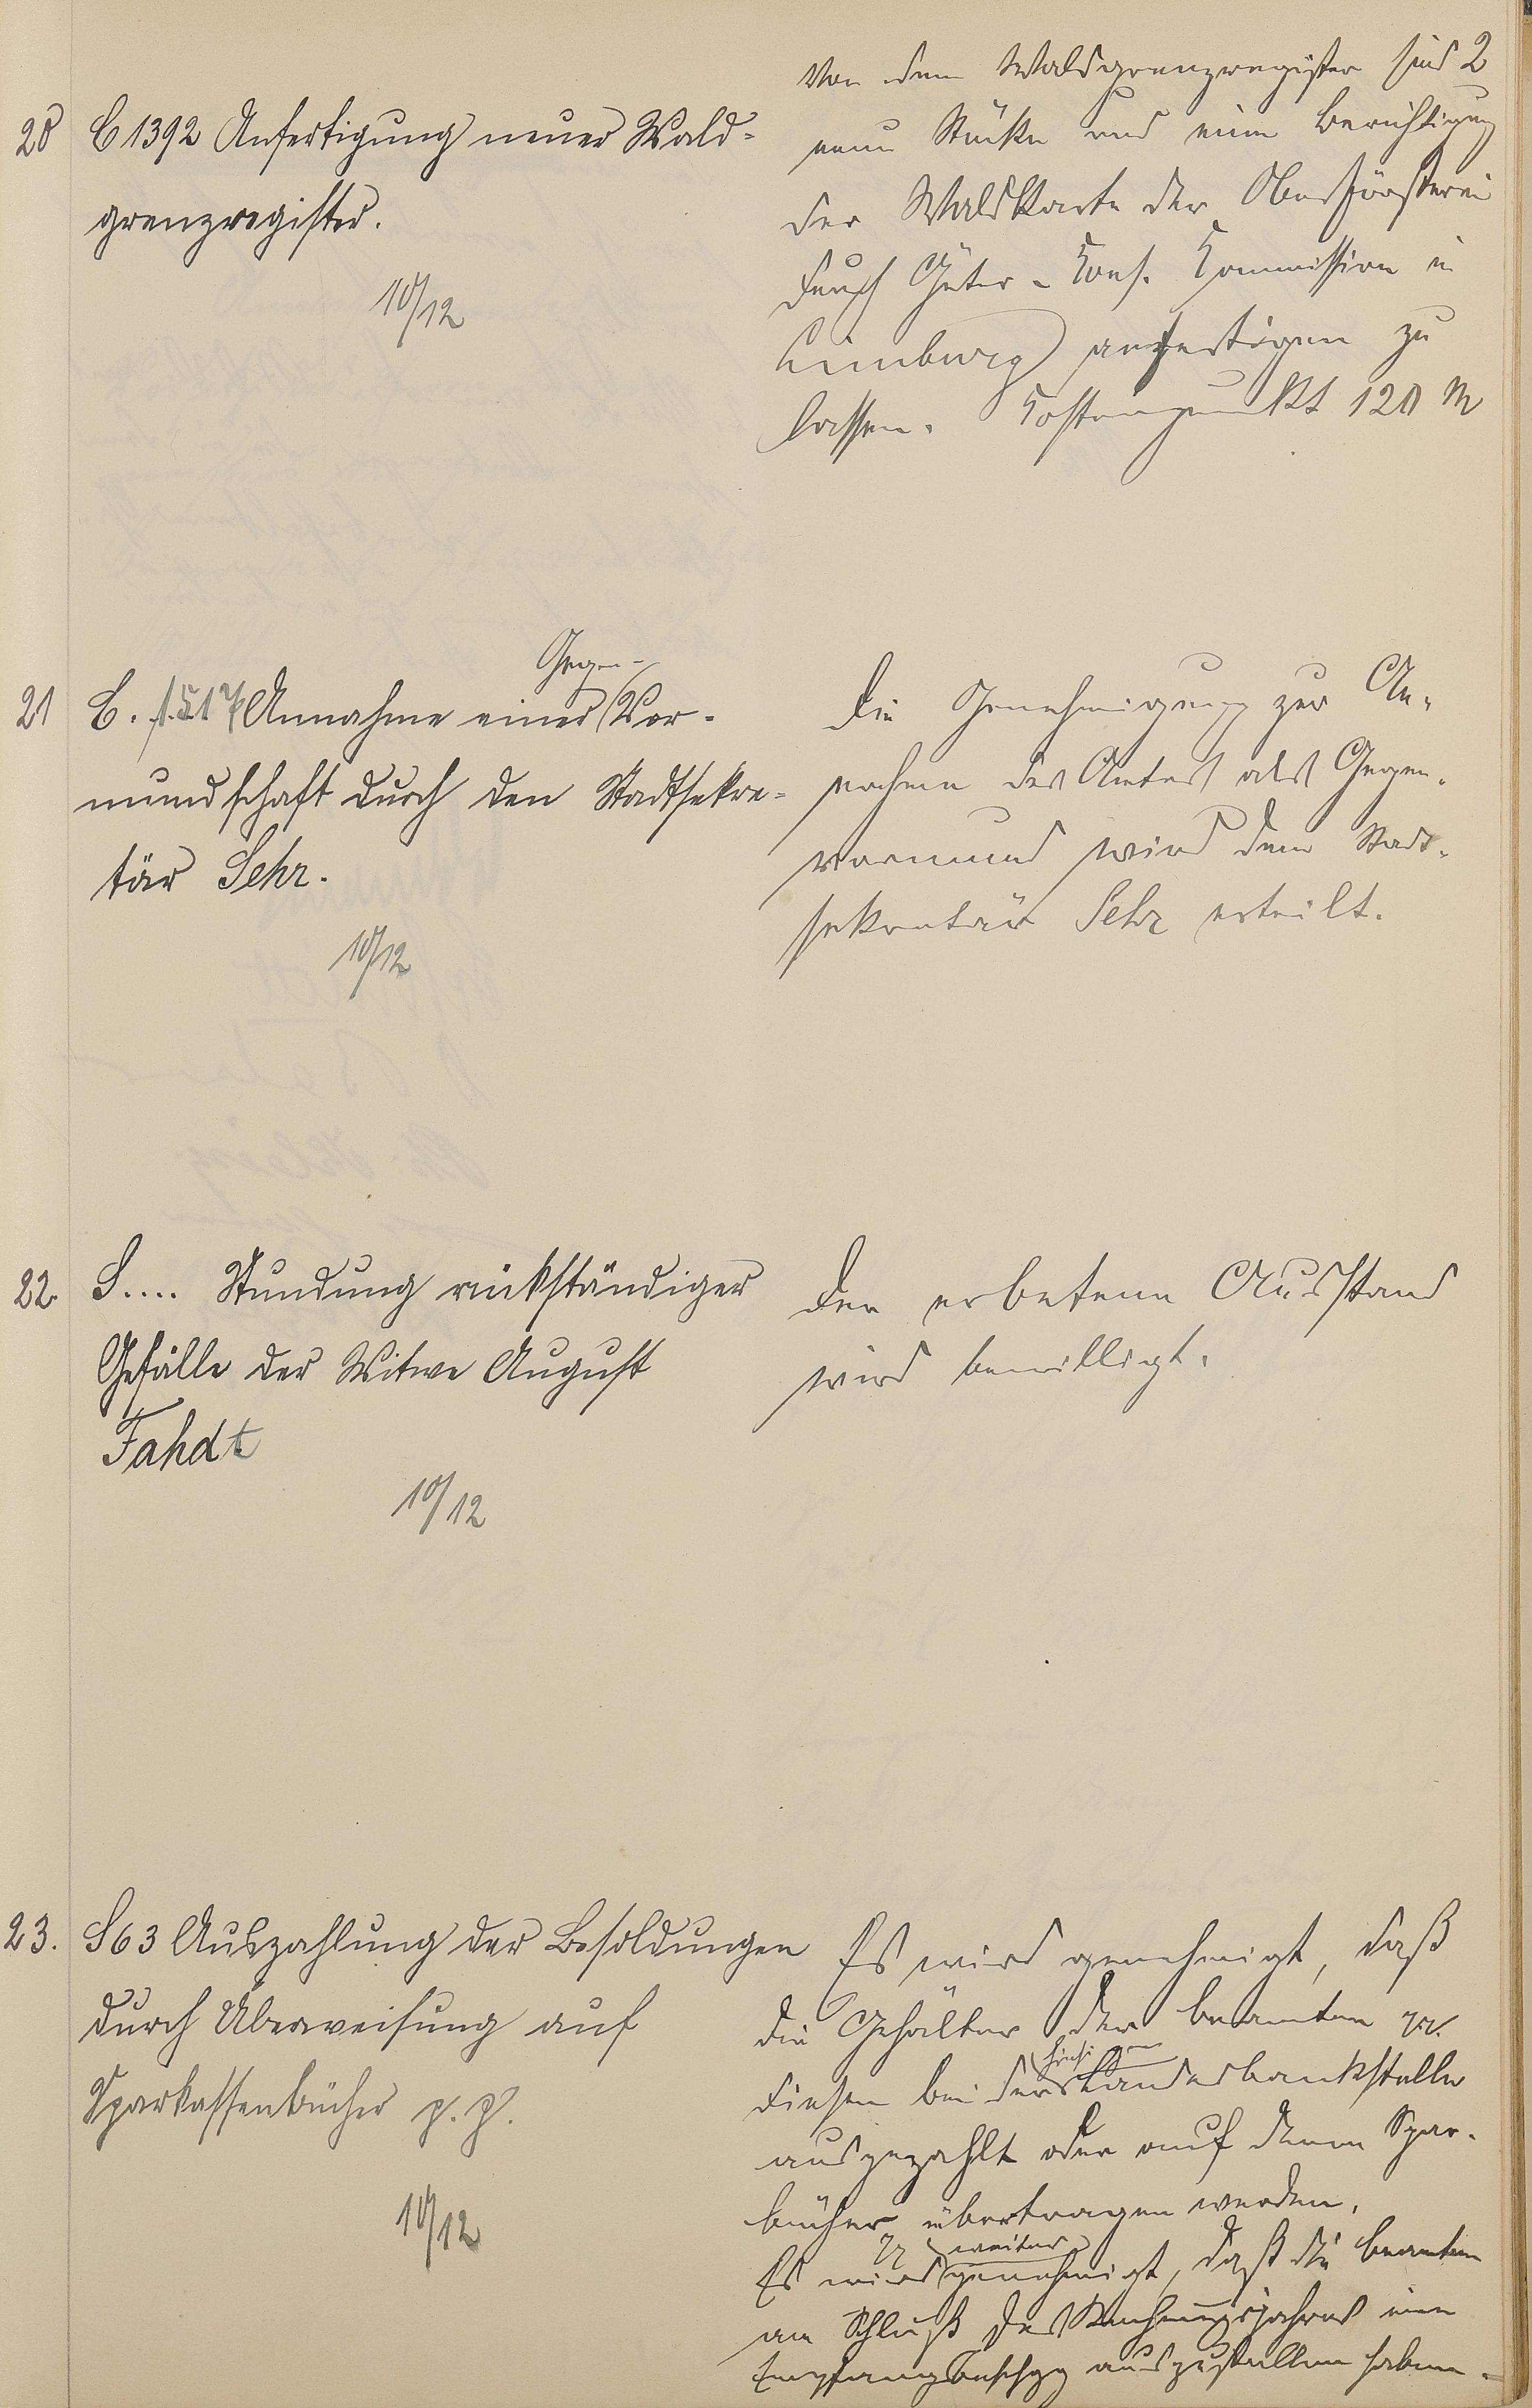 20 C 1392 Anfertigung neuer Wald-
grenzregister.
10/12
Von dem Waldgrenzregister sind 2
neue Stücke und eine Berichtigung
der Waldkarte der Oberförsterei
durch Güter-Kons. Kommission in
Limburg anfertigen zu
lassen. Kostenpunkt 120 M
21 C. 1517 Annahme einer Vor-
Gegen-
mundschaft durch den Stadtsekre-
tär Sehr.
10/12
Die Genehmigung zur An-
nahme des Amtes als Gegen-
vormund wird dem Stadt-
sekretär Sehr erteilt.
22. S.... Stundung rückständiger
Gefälle der Witwe August
Fahdt
10/12
Der erbetene Ausstand
wird bewilligt.
23. S 63 Auszahlung der Besoldungen
durch Überweisung auf
Sparkassenbücher p. p.
10/12
Es wird genehmigt, daß
die Gehälter der Beamten
diesen bei der Landesbankstelle
hiesigen
ausgezahlt oder auf deren Spar-
bücher übertragen werden.
weiter
Es wird genehmigt, daß die Beamten
am Schluß des Rechnungsjahres eine
auszustellen haben.